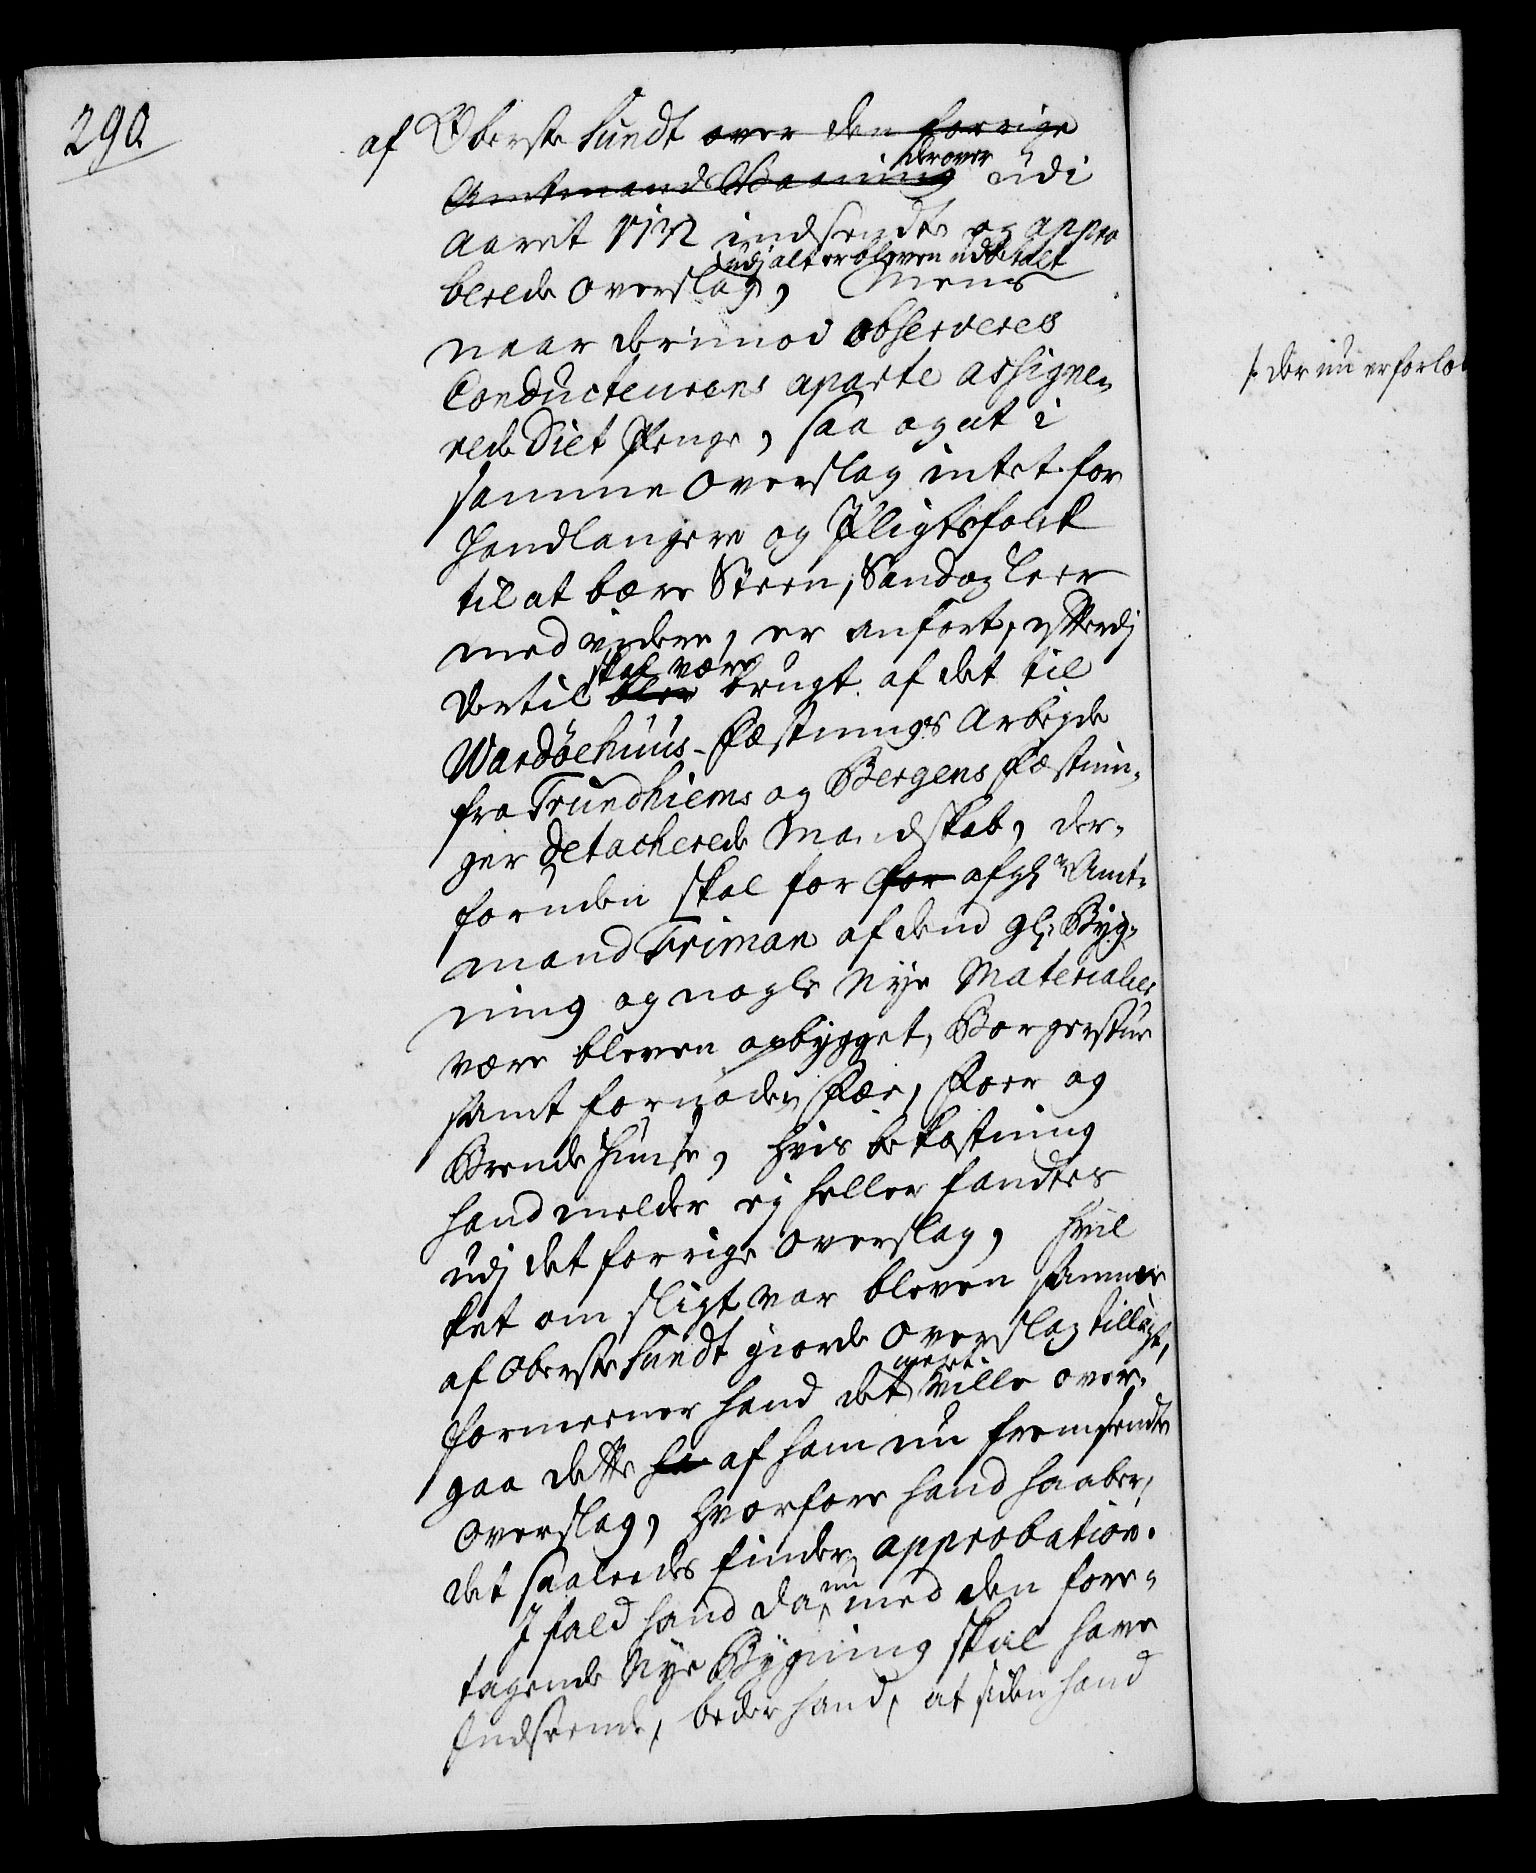 290
af Oberste Sundt over den forrige
Amtmands Vaaning derover udi
Aaret 1732 indsendte og appro
berede Overslag, udj alt er bleven udbetalt Mens
naar derimod observeres
Conducteurens aparte assigne,
rede Diet Penge, saa og at i
samme Overslag intet for
Handlangere og Pligtsfolck
til at bære Steen, Sand og Leer
med videre, er anført, efterdj
dertil blev skal være brugt af det til
Wardøehuus-Fæstnings Arbejde
fra Trundhiems og Bergens Fæstnin,
ger Detacherede Mandskab, der,
foruden skal for for afg: Amt,
mand Friman af dend gl: Byg,
ning og nogle Nye Materialier
være bleven opbygget, Borgerstue
samt fornøden Fæe, Foer og
Brende Huuse, hvis bekostning
hand melder ej heller fandtes
udj det forrige Overslag, hvil
ket om sligt var bleven samme
af Oberste Sundt giorde Overslag tillagt,
formeener hand det meget ville over,
gaa dette ha af ham nu fremsendte
Overslag, hvorfore hand haaber,
det saaleedes finder approbation.
I fald hand da nu med den fore,
tagende Nye Bygning skal have
Indseende, beder hand, at siden hand
/: der nu er forlø